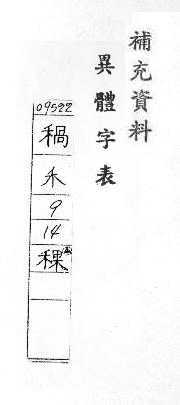 補充資料
異體字表
09522
稒
禾
9
14
稞